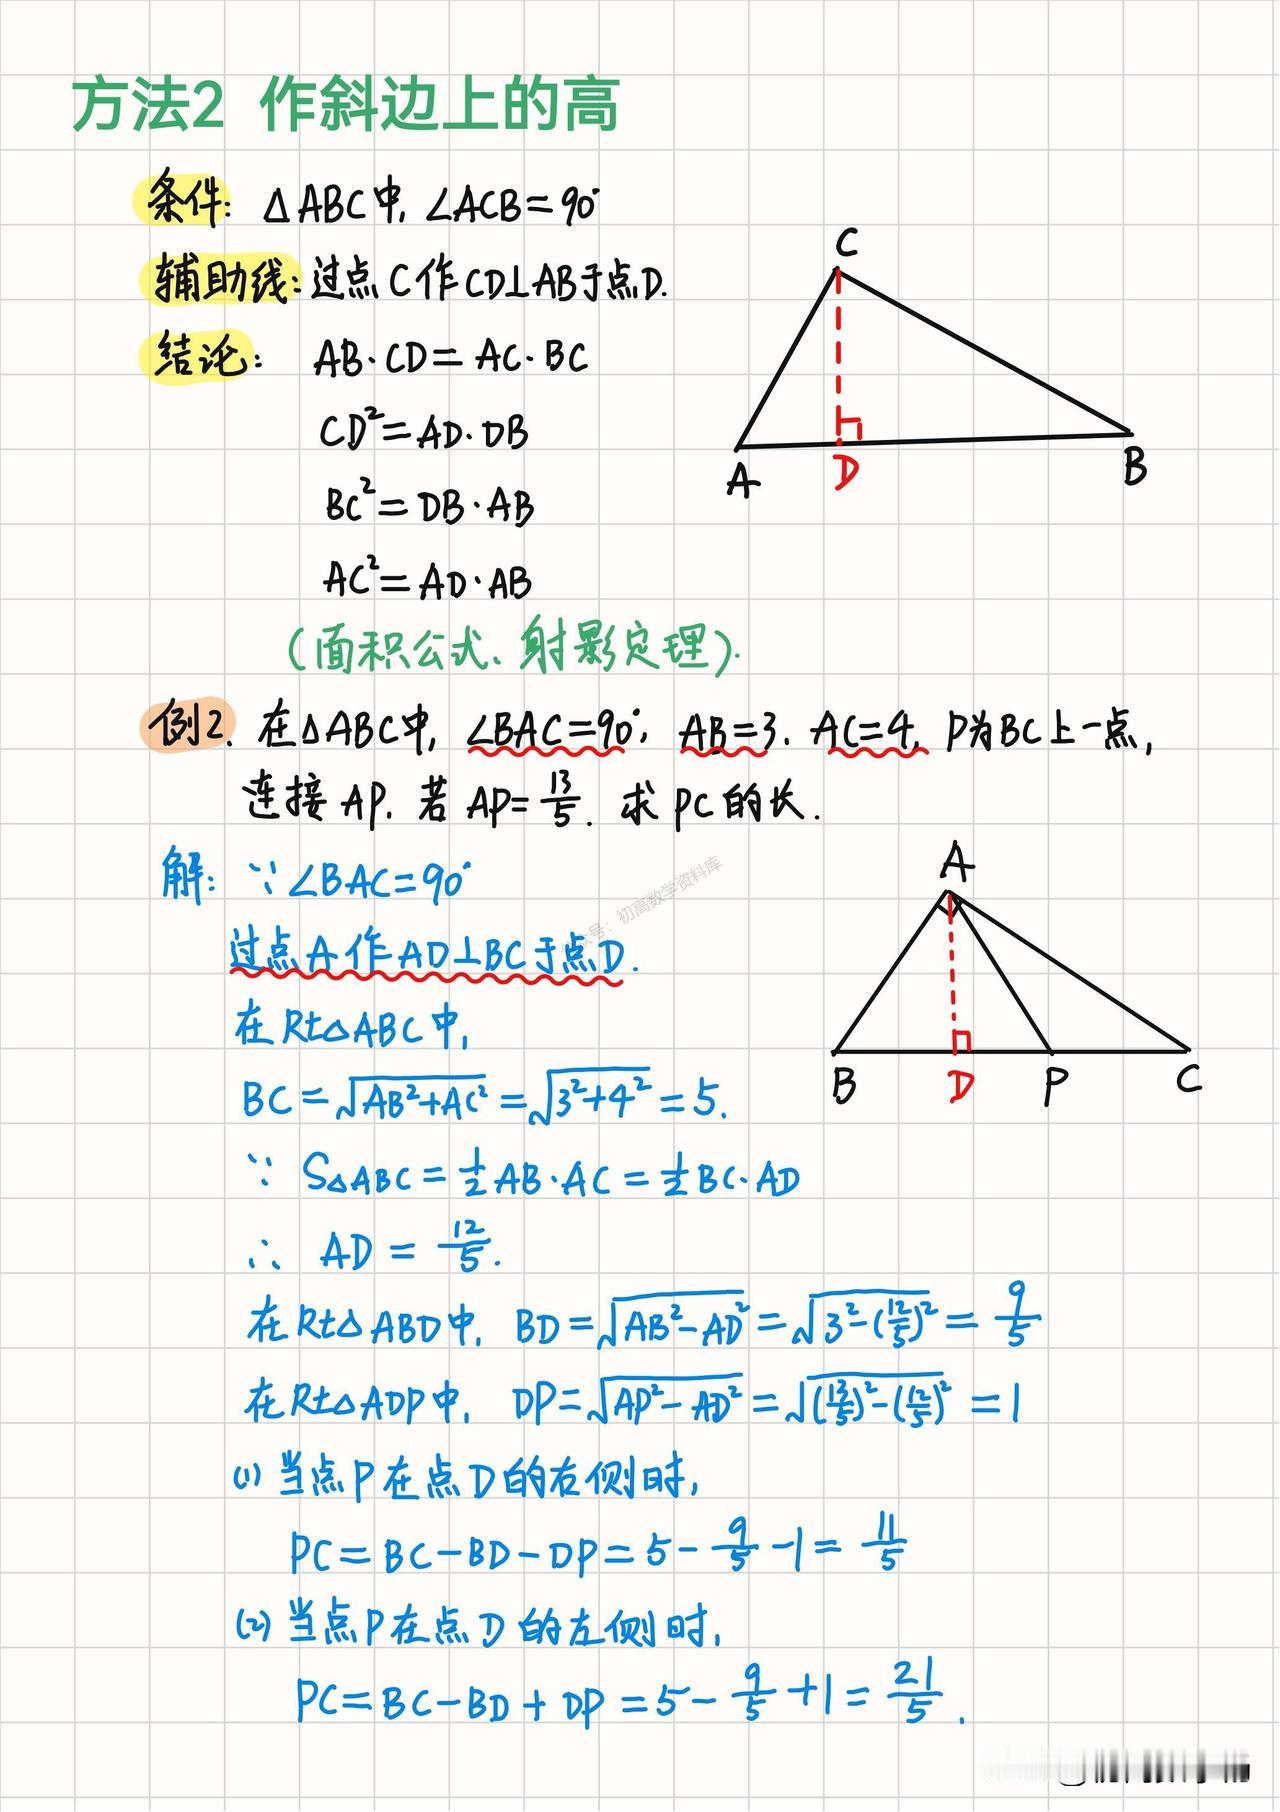 方法2 作斜边上的高
条件: △ABC中, ∠ACB=90°
辅助线: 过点C作CD⊥AB于点D.
结论: AB·CD=AC·BC
CD²=AD·DB
BC²=DB·AB
AC²=AD·AB
(面积公式、射影定理).
C
A D B
例2. 在△ABC中, ∠BAC=90°, AB=3. AC=4, P为BC上一点,
连接AP. 若AP=13/5. 求PC的长.
解: ∵∠BAC=90°
过点A作AD⊥BC于点D.
在Rt△ABC中,
BC=√(AB²+AC²)=√(3²+4²)=5.
∵ S△ABC=1/2AB·AC=1/2BC·AD
∴ AD=12/5.
在Rt△ABD中, BD=√(AB²-AD²)=√(3²-(12/5)²)=9/5
在Rt△ADP中, DP=√(AP²-AD²)=√((13/5)²-(12/5)²)=1
(1)当点P在点D的右侧时,
PC=BC-BD-DP=5-9/5-1=11/5
(2)当点P在点D的左侧时,
PC=BC-BD+DP=5-9/5+1=21/5.
A
B D P C
号: 初高数学资料库